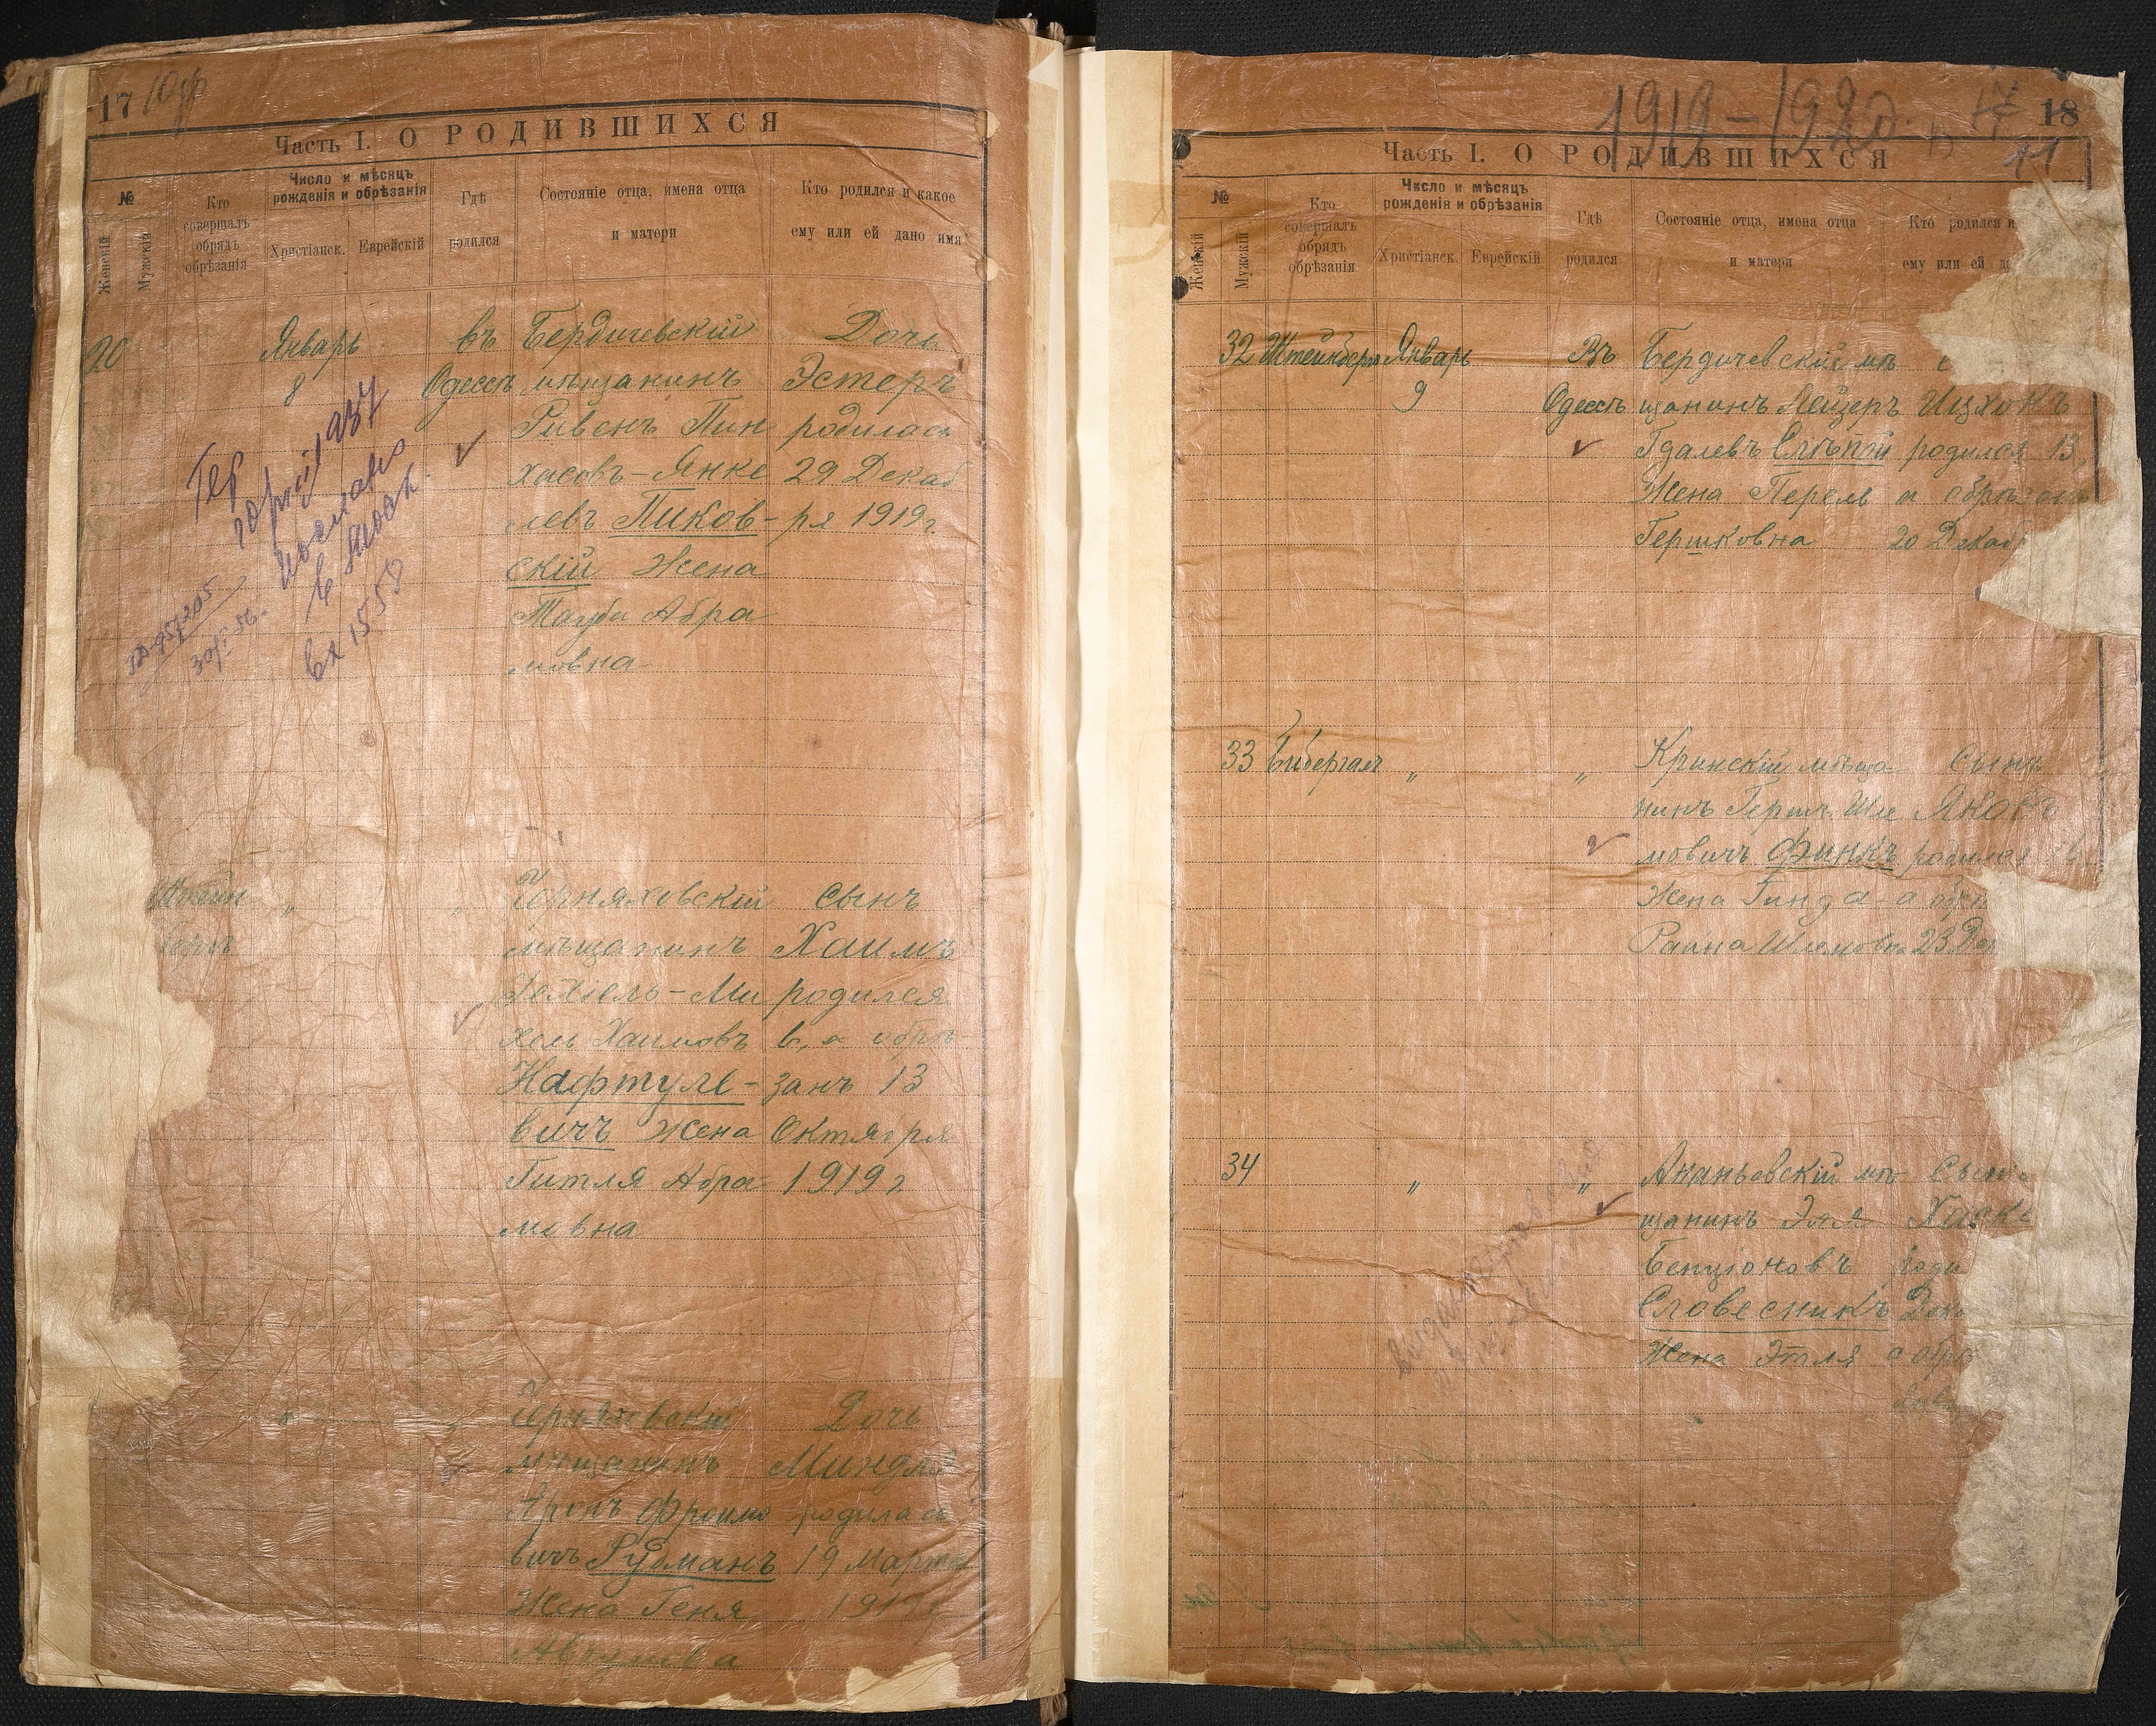 17
Часть I. О РОДИВШИХСЯ
№
Женскій
Мужскій
Кто совершалъ обрядъ обрѣзанія
Число и мѣсяцъ рожденія и обрѣзанія
Христіанск.
Еврейскій
Гдѣ родился
Состояніе отца, имена отца и матери
Кто родился и какое ему или ей дано имя
20
Январь
8
въ
Одессѣ
Бердичевскій
мѣщанинъ
Рувенъ Пин
хасовъ-Янке
левъ Пиков-
скій Жена
Тауба Абра
мовна
Дочь
Эстеръ
родилась
29 Декаб
ря 1919 г
1937
послано
в Моск.
вх 1558
Штейн
бергъ
„
„
Черняховскій
мѣщанинъ
Іехіель-Ми
хель Хаимовъ
Нафтуле-
вичъ Жена
Гитля Абра
мовна
Сынъ
Хаимъ
родился
6, а обрѣ
занъ 13
Октября
1919 г
Черняховскій
мѣщанинъ
Аронъ Фроимо
вичъ Рудманъ
Жена Геня
Дочь
Миндля
родилась
19 Марта
1919-1920.
17
18
11
Часть I. О РОДИВШИХСЯ
№
Женскій
Мужскій
Кто совершалъ обрядъ обрѣзанія
Число и мѣсяцъ рожденія и обрѣзанія
Христіанск.
Еврейскій
Гдѣ родился
Состояніе отца, имена отца и матери
Кто родился и
ему или ей д
32
Штейнбергъ
Январь
9
Въ
Одессѣ
Бердичевскій мѣ
щанинъ Лейзеръ
Гдалевъ Слѣпой
Жена Перель
Гершковна
Ицхокъ
родился 13,
а обрѣзанъ
20 Декаб
33
Бибергал
„
„
Кринскій мѣща-
нинъ Герш Шле
мовичъ Финкъ
Жена Гинда-
Райна Шлемовна
Сынъ
Яковъ
родился
а обрѣ
23 Дек
34
„
„
Ананьевскій мѣ-
щанинъ Эля
Бенціоновъ
Словесникъ
Жена Этля
Сынъ
роди
Дека
а обрѣ